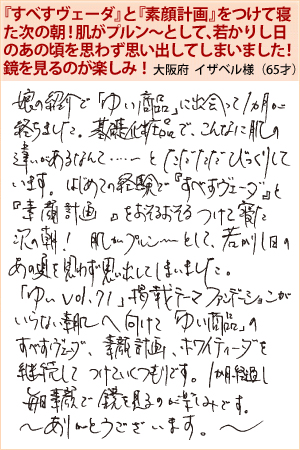 『すべすべヴェーダ』と『素顔計画』をつけて寝
た次の朝！肌がプルン～として、若かりし日
のあの頃を思わず思い出してしまいました！
鏡を見るのが楽しみ！ 大阪府 イザベル様（65才）
娘の紹介で「ゆい商品」に出会って1カ月が
経ちました。基礎化粧品で、こんなに肌の
違いがあるなんて……… と ただただただびっくりして
います。はじめての経験で『すべすべヴェーダ』と
『素顔計画 』をおそるおそる つけて 寝た
次の朝！ 肌がプルン～ として、若かりし日の
あの頃を思わず思い出してしまいました。
「ゆい vol.71」掲載テーマ ファンデーションが
いらない素肌へ 向けて 「ゆい商品」の
すべすべヴェーダ、素顔計画、ホワイティーダを
継続して つけていくつもりです。1カ月経過し
毎日素顔で 鏡を見るのが楽しみです。
～ありがとうございます。～